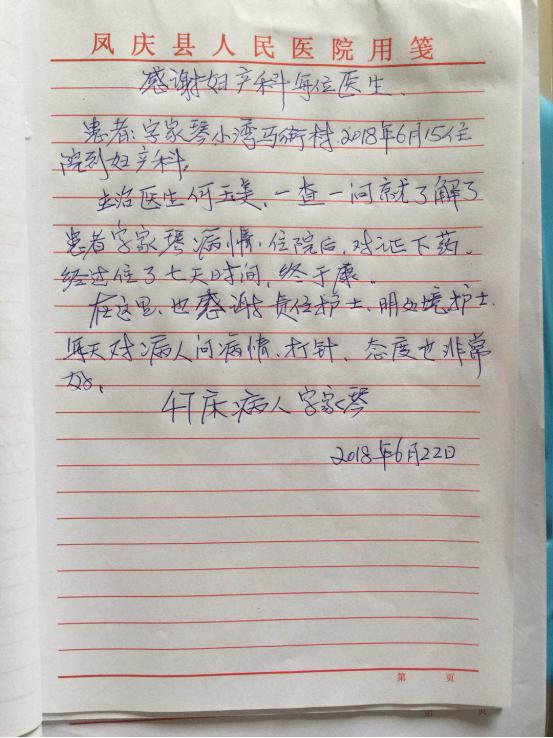 凤庆县人民医院用笺
感谢妇产科每位医生.
患者:字家琴小湾马街村.2018年6月15住
院到妇产科,
主治医生何玉美,一查一问就了解了
患者字家琴病情.住院后,对证下药.
经过住了七天时间,终于康。
在这里,也感谢责任护士,明文境护士.
每天对病人问病情、打针、态度也非常
好;
47床病人字家琴
2018年6月22日
第 页
第 页